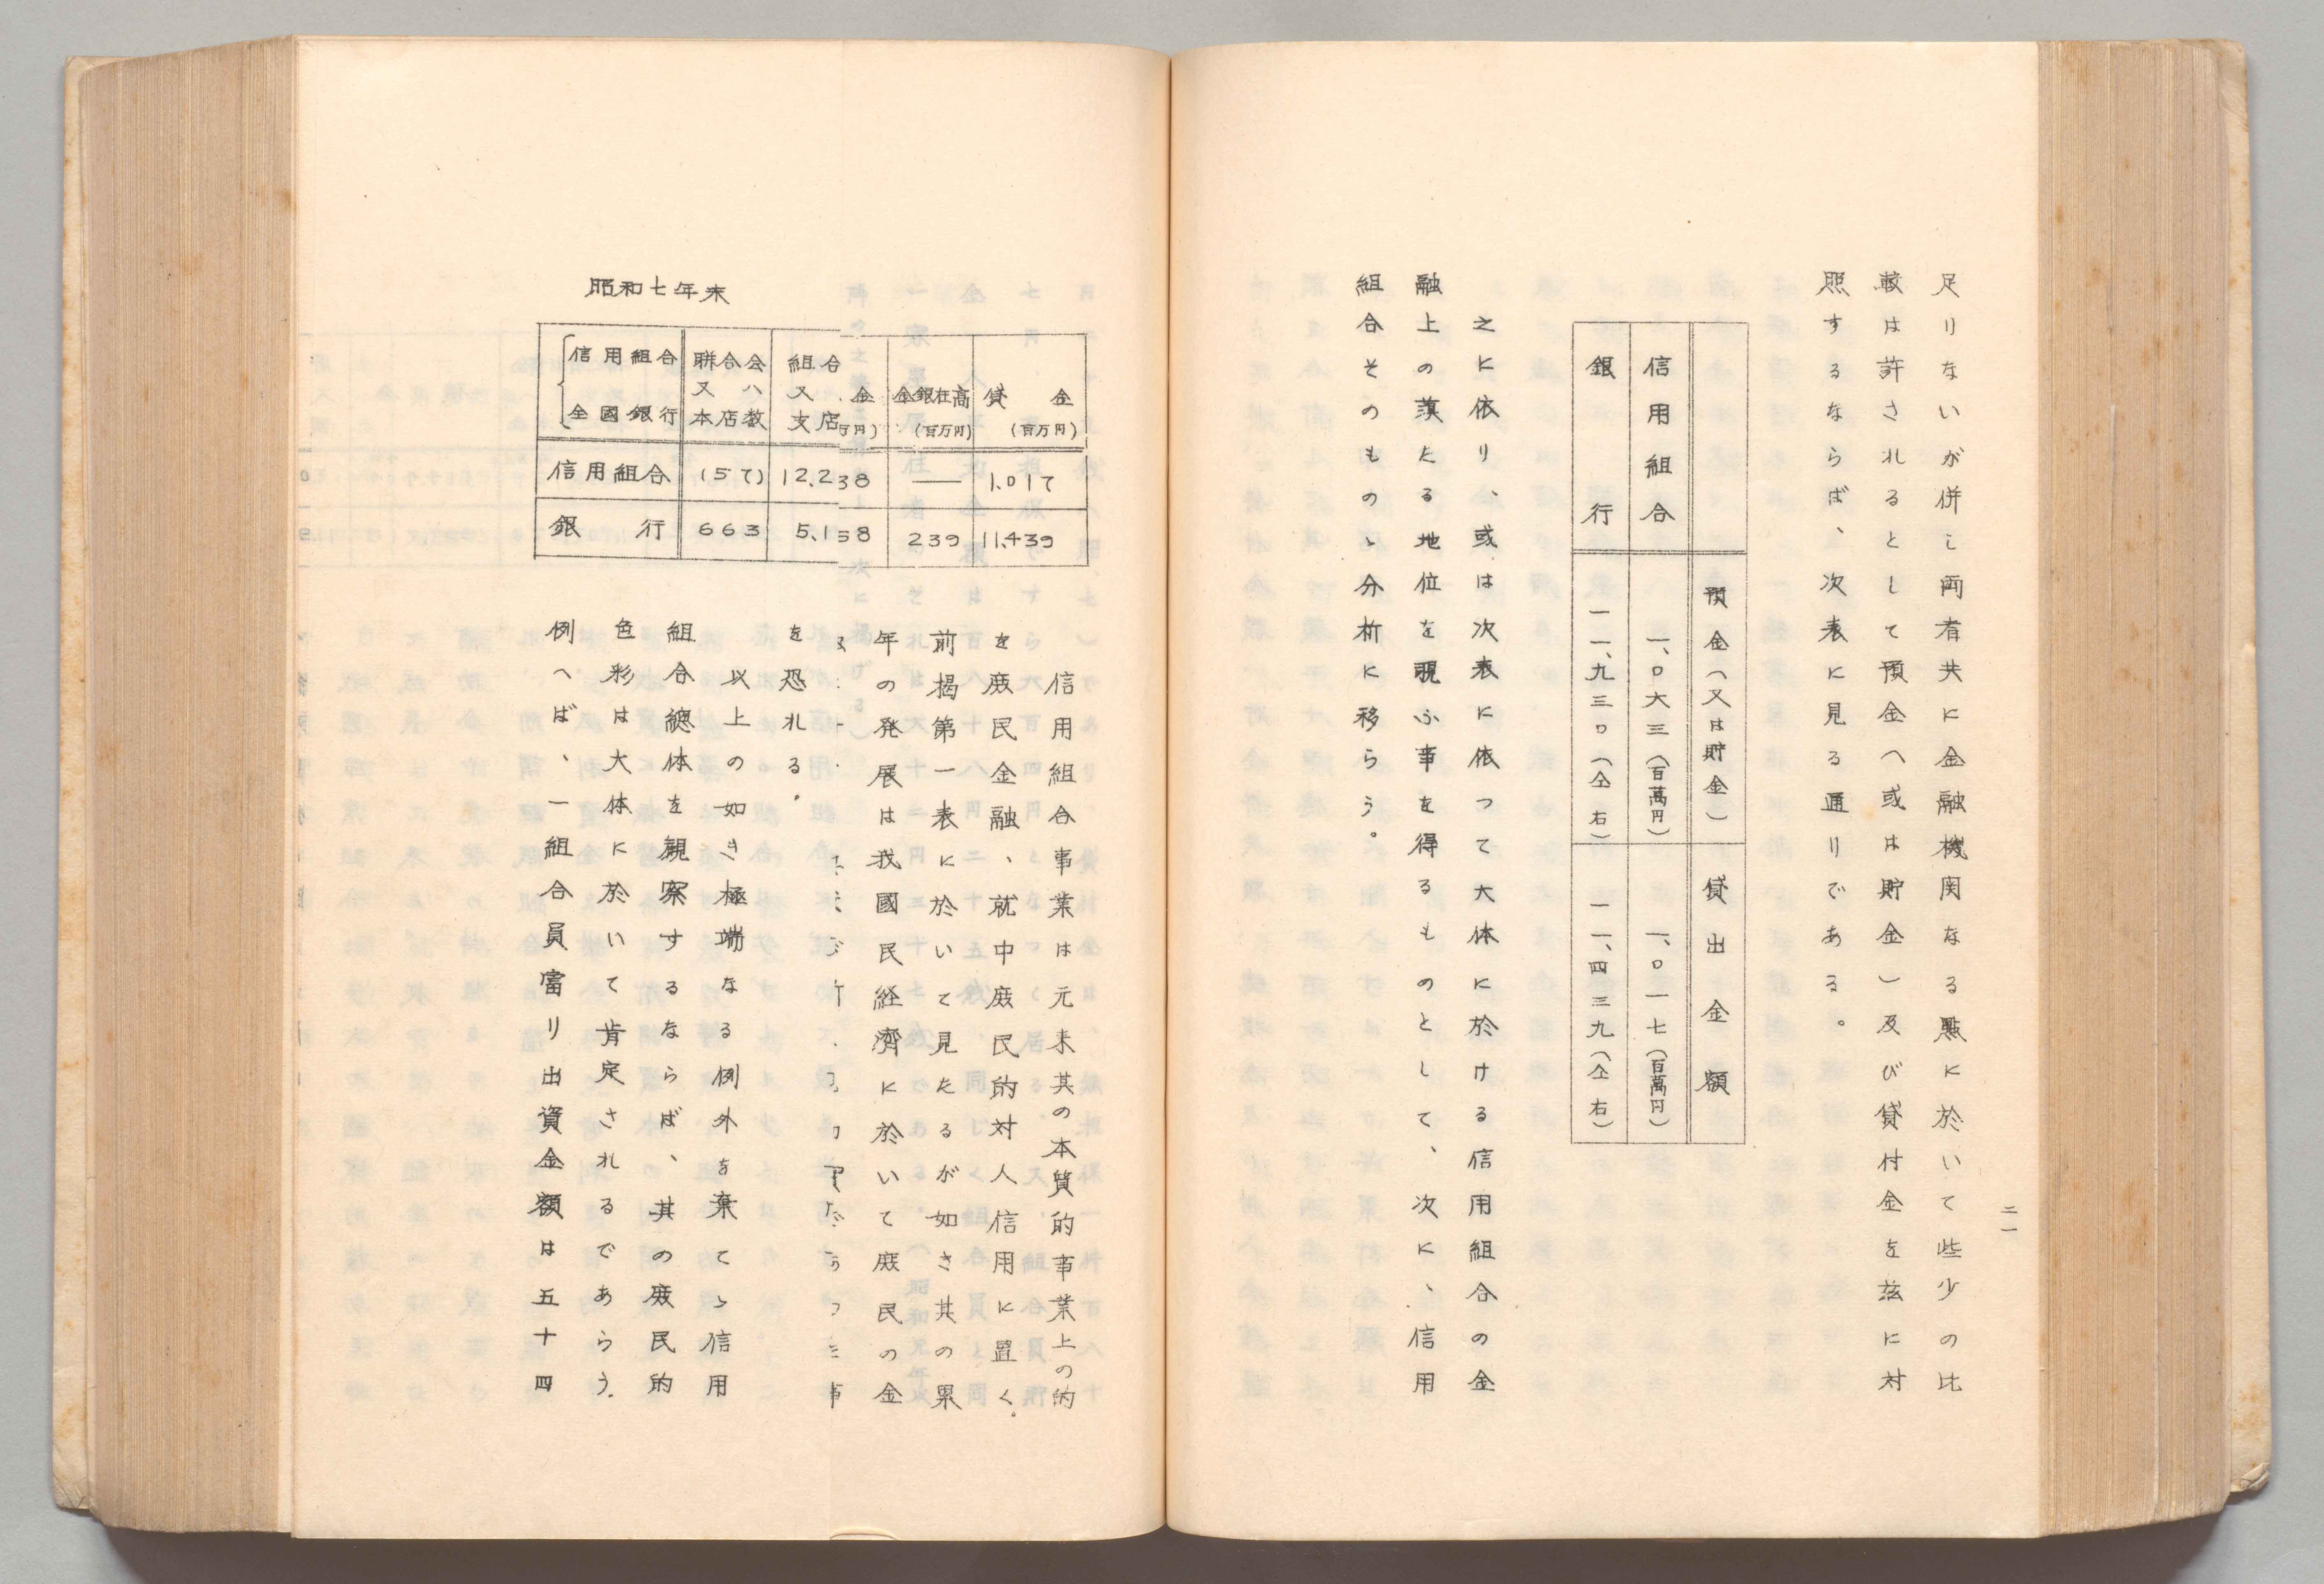 二一
足りないが併し両者共に金融機関なる點に於いて些少の比
較は許されるとして預金(或は貯金)及び貸付金を玆に対
照するならば、次表に見る通りである。
預金(又は貯金) 貸出金額
信用組合 一、〇六三(百萬円) 一、〇一七(百萬円)
銀行 一一、九三〇(仝右) 一一、四三九(仝右)
之に依り、或は次表に依って大体に於ける信用組合の金
融上の
たる地位を覗ふ事を得るものとして、次に、信用
組合そのものゝ分析に移らう。
昭和七年末
信用組合 全國銀行 聯合会又ハ本店数 組合又 支店 金 万円) 金銀在高(百万円) 貸金(百万円)
信用組合 (57) 12,2 38 — 1,017
銀行 663 5,1 58 239 11,439
信用組合事業は元来其の本質的事業上の的
を庶民金融、就中庶民的対人信用に置く。
前掲第一表に於いて見たるが如き其の累
年の発展は我國民経済に於いて庶民の金
を恐れる.
以上の如き極端なる例外を棄てゝ信用
組合總体を観察するならば、其の庶民的
色彩は大体に於いて肯定されるであらう.
例へば、一組合員當り出資金額は五十四